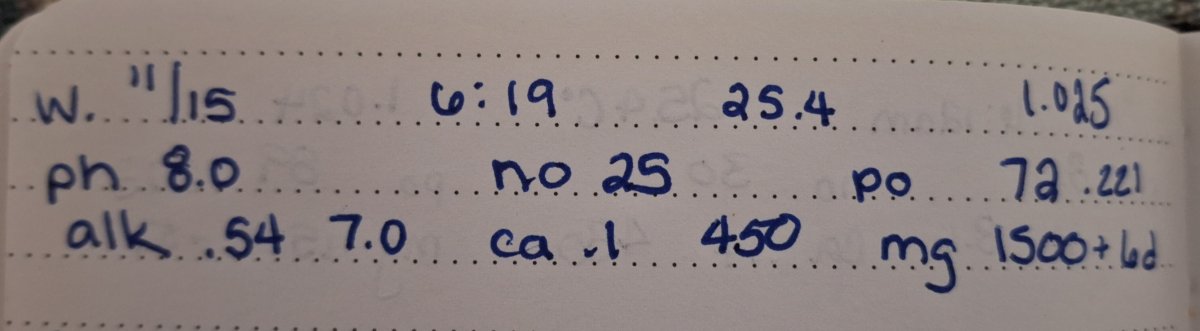 W. 11/15 6:19 25.4 1.025
ph 8.0 no 25 po 72 .221
alk .54 7.0 ca .1 450 mg 1500+6d